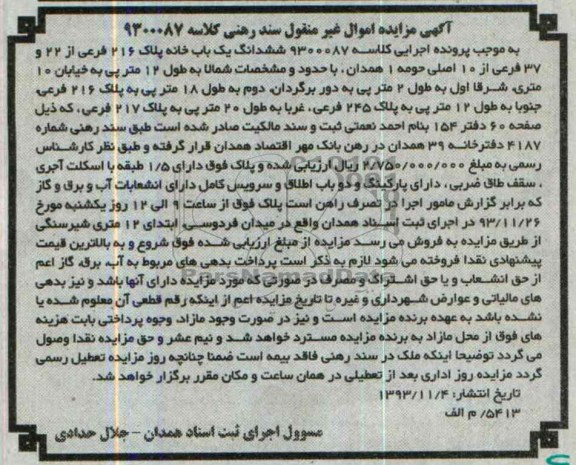 آگهی مزایده اموال غیر منقول سند رهنی کلاسه ۹۳۰۰۰۸۷
به موجب پرونده اجرایی کلاسه ۹۳۰۰۰۸۷ ششدانگ یک باب خانه پلاک ۲۱۶ فرعی از ۲۲ و
۳۷ فرعی از ۱۰ اصلی حومه ۱ همدان ، با حدود و مشخصات شمالا به طول ۱۲ متر پی به خیابان ۱۰
متری، شرقا اول به طول ۲ متر پی به دور برگردان، دوم به طول ۱۸ متر پی به پلاک ۲۱۶ فرعی،
جنوبا به طول ۱۲ متر پی به پلاک ۲۴۵ فرعی ، غربا به طول ۲۰ متر پی به پلاک ۲۱۷ فرعی، که ذیل
صفحه ۶۰ دفتر ۱۵۴ بنام احمد نعمتی ثبت و سند مالکیت صادر شده است طبق سند رهنی شماره
۴۱۸۷ دفترخانه ۳۹ همدان در رهن بانک مهر اقتصاد همدان قرار گرفته و طبق نظر کارشناس
رسمی به مبلغ ۲/۷۵۰/۰۰۰/۰۰۰ ریال ارزیابی شده و پلاک فوق دارای ۱/۵ طبقه با اسکلت آجری
، سقف طاق ضربی ، دارای پارکینگ و دو باب اطلاق و سرویس کامل دارای انشعابات آب و برق و گاز
که برابر گزارش مامور اجرا در تصرف راهن است پلاک فوق از ساعت ۹ الی ۱۲ روز یکشنبه مورخ
۹۳/۱۱/۲۶ در اجرای ثبت اسناد همدان واقع در میدان فردوسی، ابتدای ۱۲ متری شیرسنگی
از طریق مزایده به فروش می رسد مزایده از مبلغ ارزیابی شده فوق شروع و به بالاترین قیمت
پیشنهادی نقدا فروخته می شود لازم به ذکر است پرداخت بدهی های مربوط به آب، برق، گاز اعم
از حق انشعاب و یا حق اشتراک و مصرف در صورتی که مورد مزایده دارای آنها باشد و نیز بدهی
های مالیاتی و عوارض شهرداری و غیره تا تاریخ مزایده اعم از اینکه رقم قطعی آن معلوم شده یا
نشده باشد به عهده برنده مزایده است و نیز در صورت وجود مازاد، وجوه پرداختی بابت هزینه
های فوق از محل مازاد به برنده مزایده مسترد خواهد شد و نیم عشر و حق مزایده نقدا وصول
می گردد توضیحا اینکه ملک در سند رهنی فاقد بیمه است ضمنا چنانچه روز مزایده تعطیل رسمی
گردد مزایده روز اداری بعد از تعطیلی در همان ساعت و مکان مقرر برگزار خواهد شد.
تاریخ انتشار: ۱۳۹۳/۱۱/۴
۵۴۱۳/ م الف
مسوول اجرای ثبت اسناد همدان - جلال حدادی
ParsNamadData